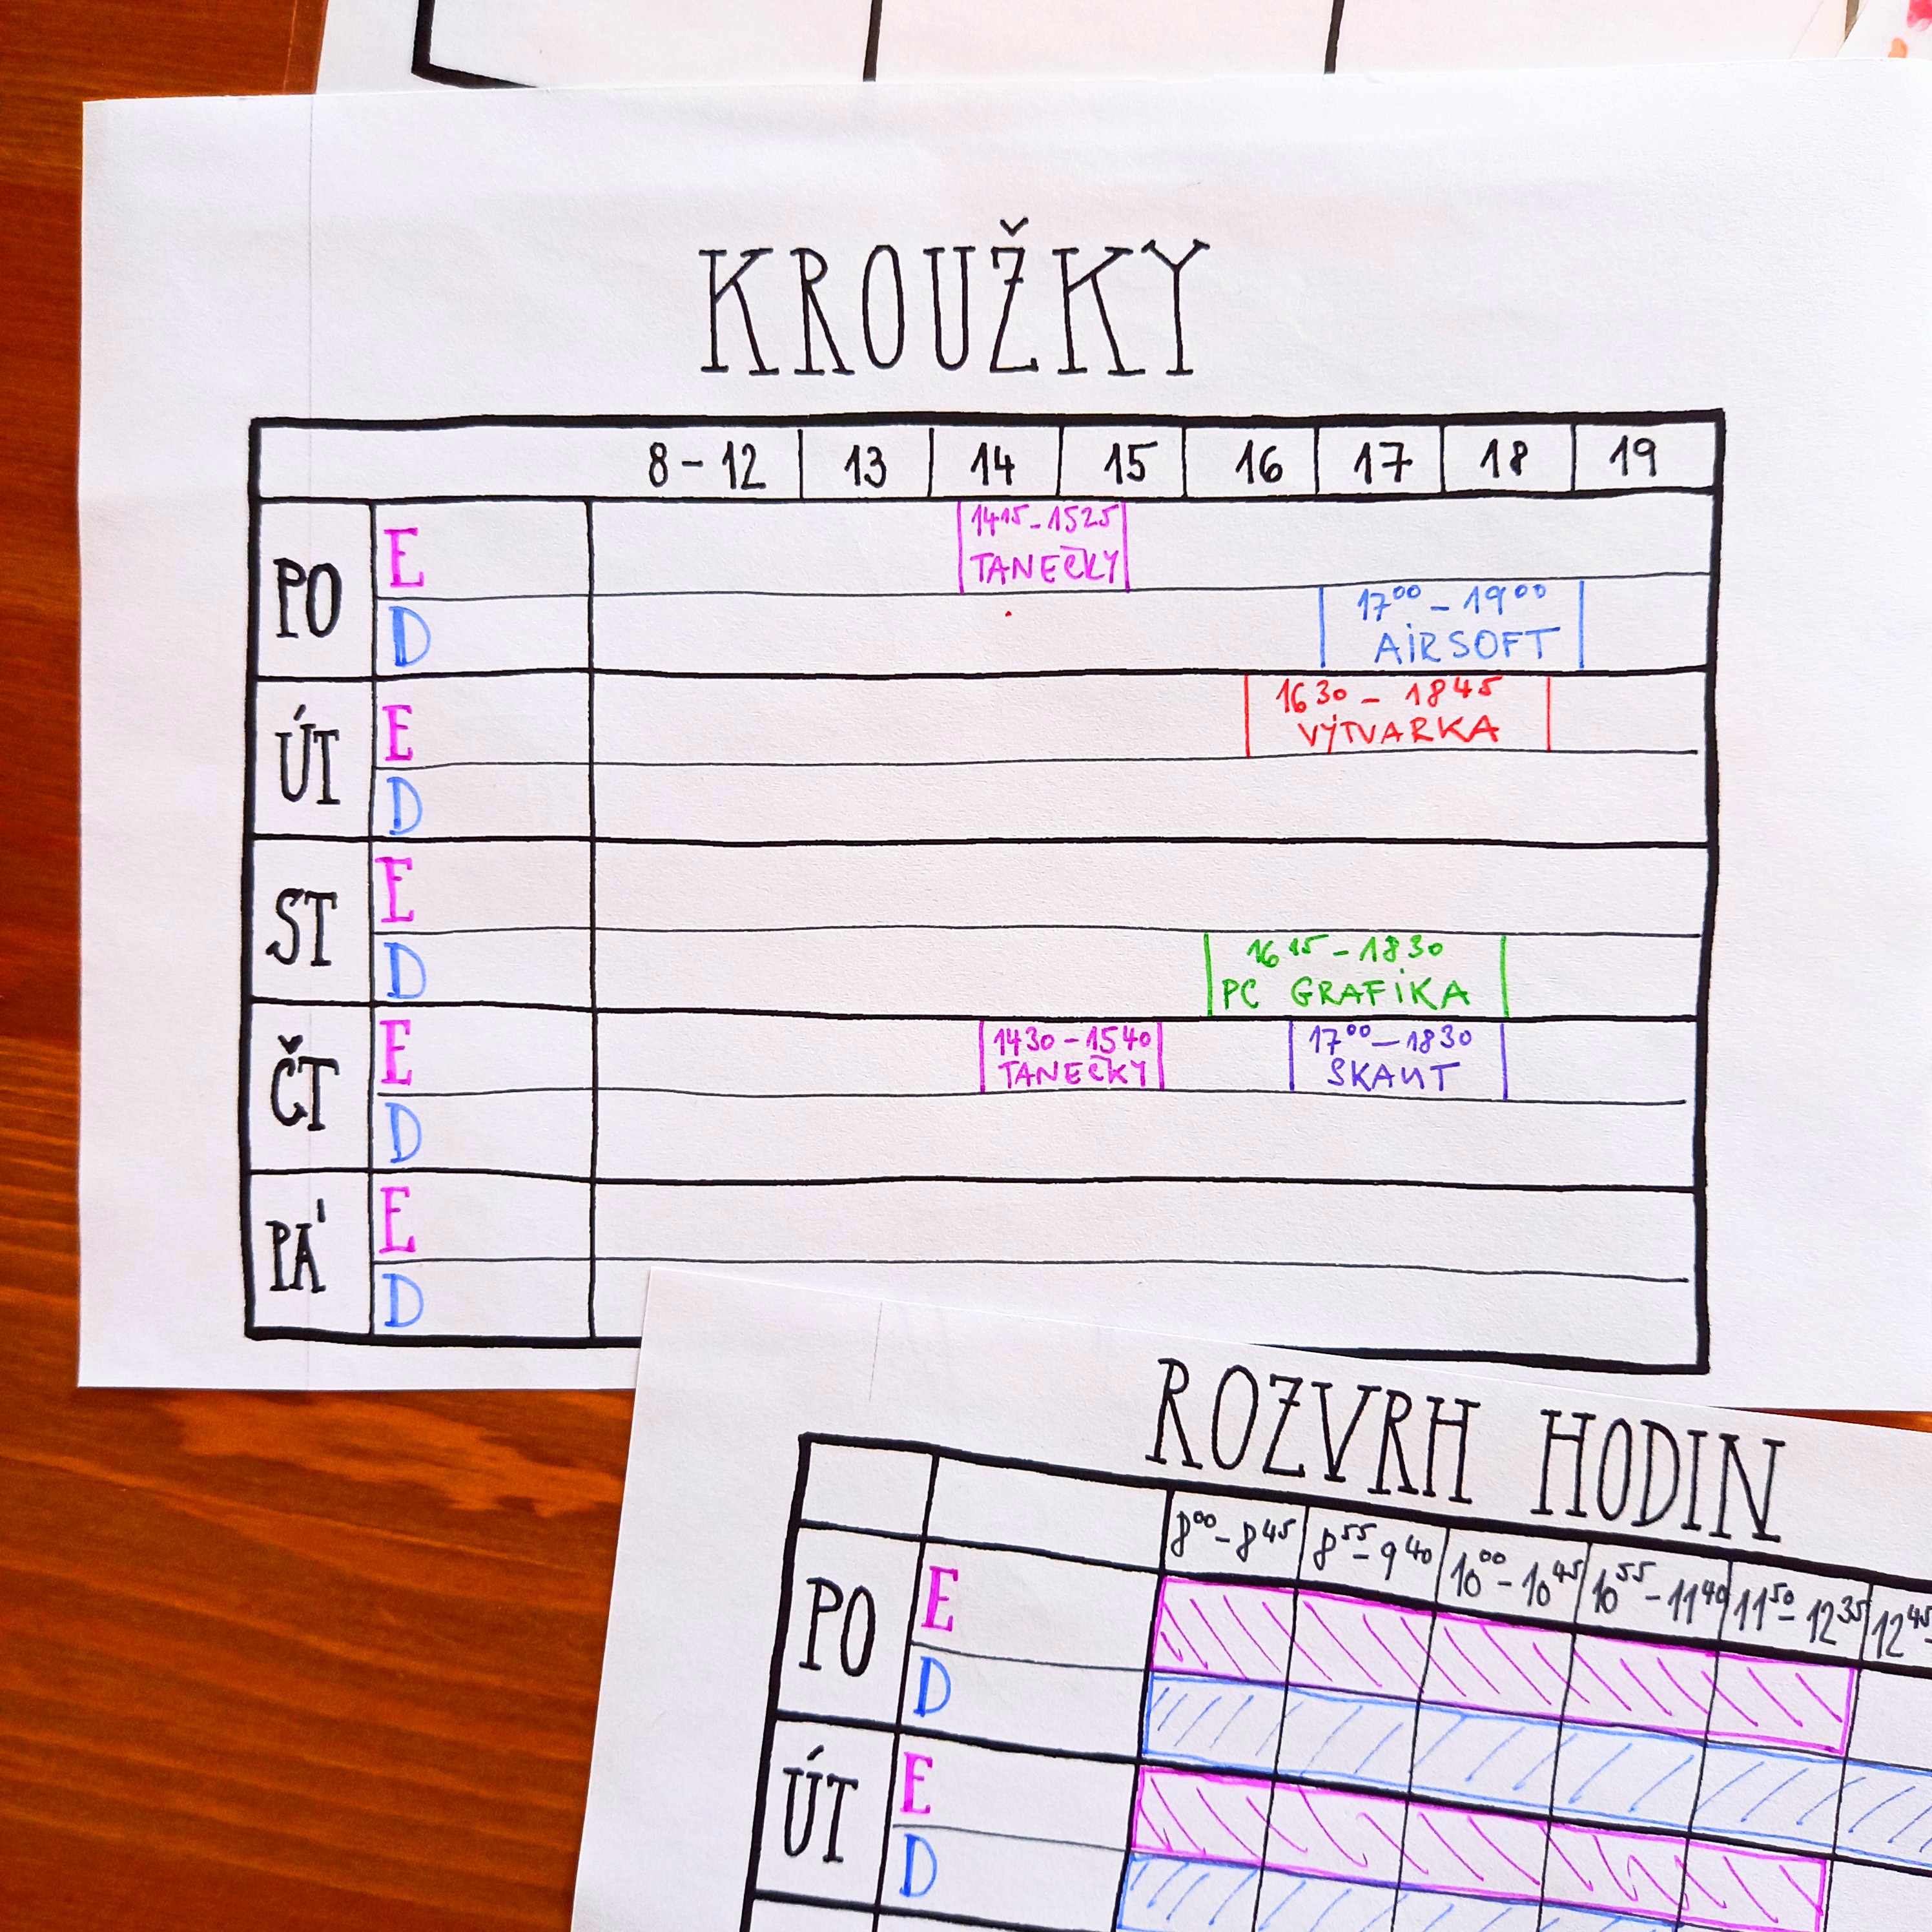 KROUŽKY
8 - 12 13 14 15 16 17 18 19
PO
E
14¹⁵ - 15²⁵
TANEČKY
D
17⁰⁰ - 19⁰⁰
AIRSOFT
ÚT
E
16³⁰ - 18⁴⁵
VÝTVARKA
D
ST
E
D
16¹⁵ - 18³⁰
PC GRAFIKA
ČT
E
14³⁰ - 15⁴⁰
TANEČKY
17⁰⁰ - 18³⁰
SKAUT
D
PÁ
E
D
ROZVRH HODIN
8⁰⁰ - 8⁴⁵ 8⁵⁵ - 9⁴⁰ 10⁰⁰ - 10⁴⁵ 10⁵⁵ - 11⁴⁰ 11⁵⁰ - 12³⁵ 12⁴⁵ -
PO
E
D
ÚT
E
D